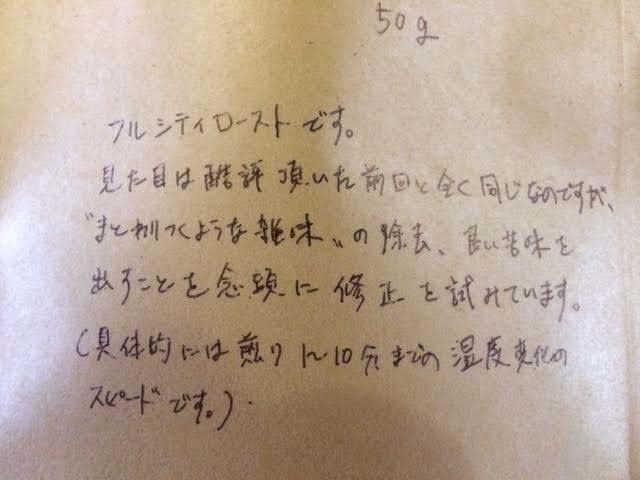 50g
フルシティローストです。
見た目は酷評頂いた前回と全く同じなのですが、
"まとわりつくような雑味"の除去、良い苦味を
出すことを念頭に修正を試みています。
(具体的には煎り〜10分までの温度変化の
スピードです。)